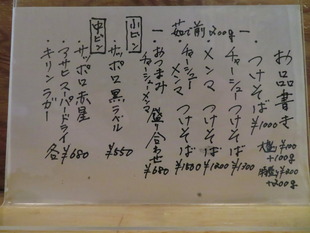 お品書き
つけそば ¥1000
大盛 ¥100
+100g
特盛 ¥200
+200g
チャーシュー つけそば ¥1300
メンマ つけそば ¥1200
チャーシューメンマ つけそば ¥1500
茹で前 200g
おつまみ
チャーシューメンマ 盛り合わせ ¥680
小ビン
サッポロ 黒ラベル ¥550
中ビン
サッポロ 赤星
アサヒスーパードライ
キリンラガー 各¥680